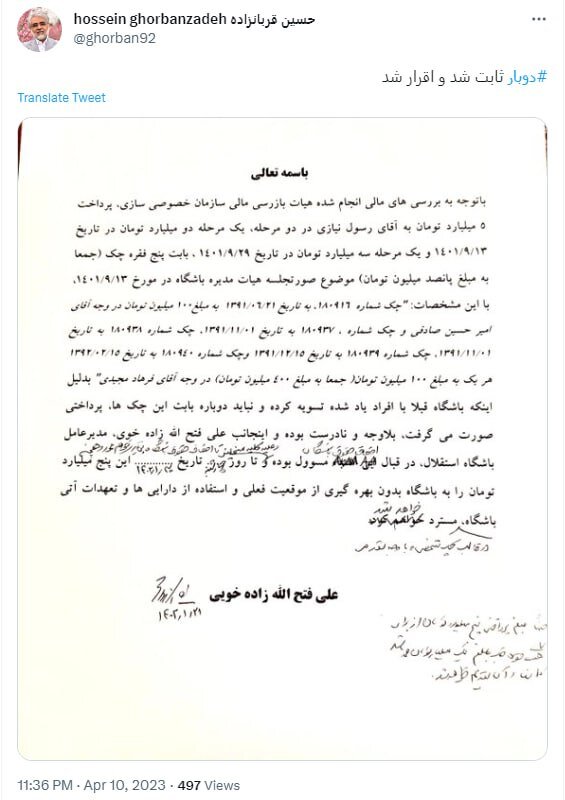 hossein ghorbanzadeh حسین قربانزاده
@ghorban92
#دوبار ثابت شد و اقرار شد
Translate Tweet
باسمه تعالی
باتوجه به بررسی های مالی انجام شده هیات بازرسی مالی سازمان خصوصی سازی، پرداخت
۵ میلیارد تومان به آقای رسول نیازی در دو مرحله، یک مرحله دو میلیارد تومان در تاریخ
۱۴۰۱/۹/۱۳ و یک مرحله سه میلیارد تومان در تاریخ ۱۴۰۱/۹/۲۹ ، بابت پنج فقره چک (جمعا
به مبلغ پانصد میلیون تومان) موضوع صورتجلسه هیات مدیره باشگاه در مورخ ۱۴۰۱/۹/۱۳،
با این مشخصات: "چک شماره ۱۸۰۹۱۶، به تاریخ ۱۳۹۱/۰۶/۲۱ به مبلغ ۱۰۰ میلیون تومان در وجه آقای
امیر حسین صادقی و چک شماره ۱۸۰۹۳۷ ، به تاریخ ۱۳۹۱/۱۱/۰۱، چک شماره ۱۸۰۹۳۸ به تاریخ
۱۳۹۱/۱۱/۰۱، چک شماره ۱۸۰۹۳۹ به تاریخ ۱۳۹۱/۱۲/۱۵ وچک شماره ۱۸۰۹۴۰ به تاریخ ۱۳۹۲/۰۲/۱۵
هر یک به مبلغ ۱۰۰ میلیون تومان( جمعا به مبلغ ۴۰۰ میلیون تومان) در وجه آقای فرهاد مجیدی" بدلیل
اینکه باشگاه قبلا با افراد یاد شده تسویه کرده و نباید دوباره بابت این چک ها، پرداختی
صورت می گرفت، بلاوجه و نادرست بوده و اینجانب علی فتح الله زاده خوی، مدیرعامل
باشگاه استقلال، در قبال این مسوول بوده و تا روز تاریخ ۱۴۰۲/۱/۲۱ این پنج میلیارد
تومان را به باشگاه بدون بهره گیری از موقعیت فعلی و استفاده از دارایی ها و تعهدات آتی
باشگاه، مسترد خواهد شد
علی فتح الله زاده خویی
۱۴۰۲/۱/۲۱
11:36 PM · Apr 10, 2023 · 497 Views